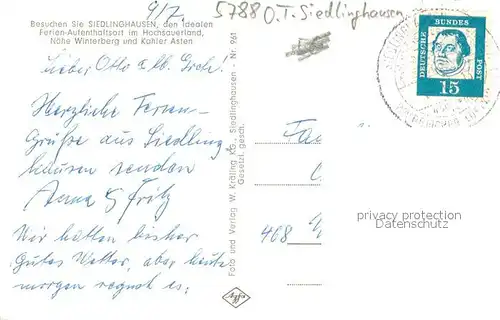 9/7.
57880.T. Siedlinghausen
Besuchen Sie SIEDLINGHAUSEN, den idealen
Ferien-Aufenthaltsort im Hochsauerland,
Nähe Winterberg und Kahler Asten
Lieber Otto
Herzliche Ferien-
Grüße aus Siedling
hausen senden
Anna & Fritz
Wir hatten bisher
Gutes Wetter, aber heute
morgen regnet es.
Foto und Verlag W. Kräling KG., Siedlinghausen - Nr. 961
Gesetzl. gesch.
Agfa
468
DEUTSCHE BUNDES POST
15
privacy protection
Datenschutz